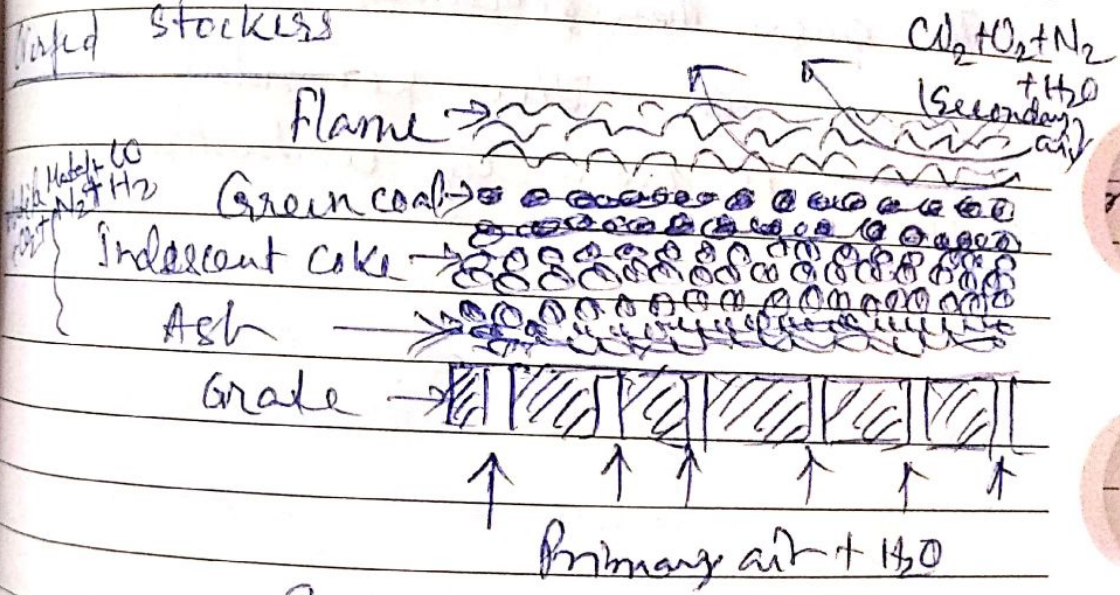 stockers
CO2+O2+N2
+H2O
(Secondary
air)
Flame
CO
N2+H2
Green coal
Indescent coke
Ash
Grate
Primary air + H2O